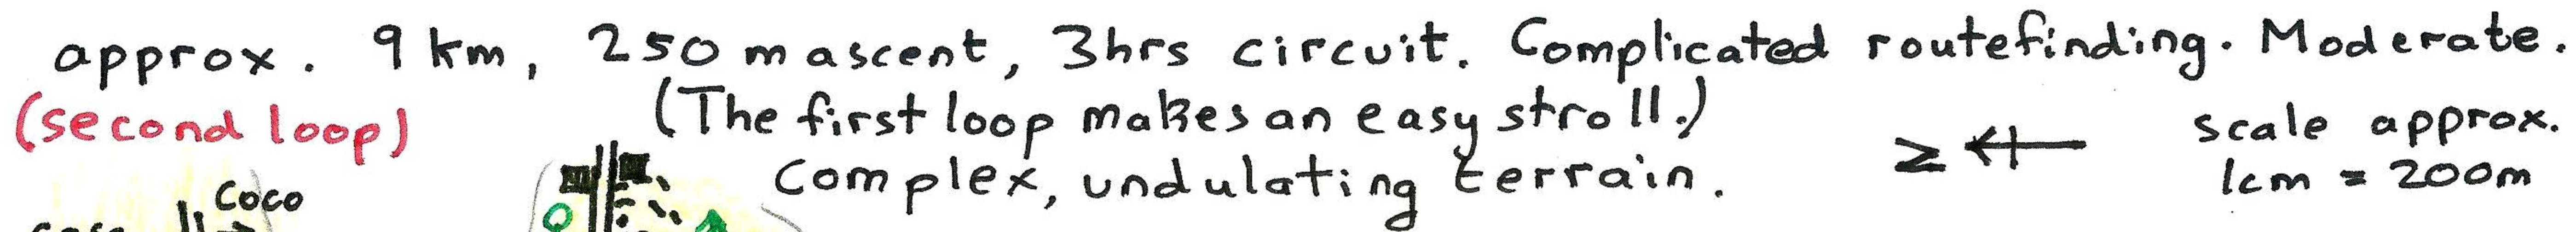 approx. 9 km, 250 m ascent, 3hrs circuit. Complicated routefinding. Moderate.
(second loop) (The first loop makes an easy stroll.)
complex, undulating terrain.
N
scale approx.
1cm = 200m
Coco